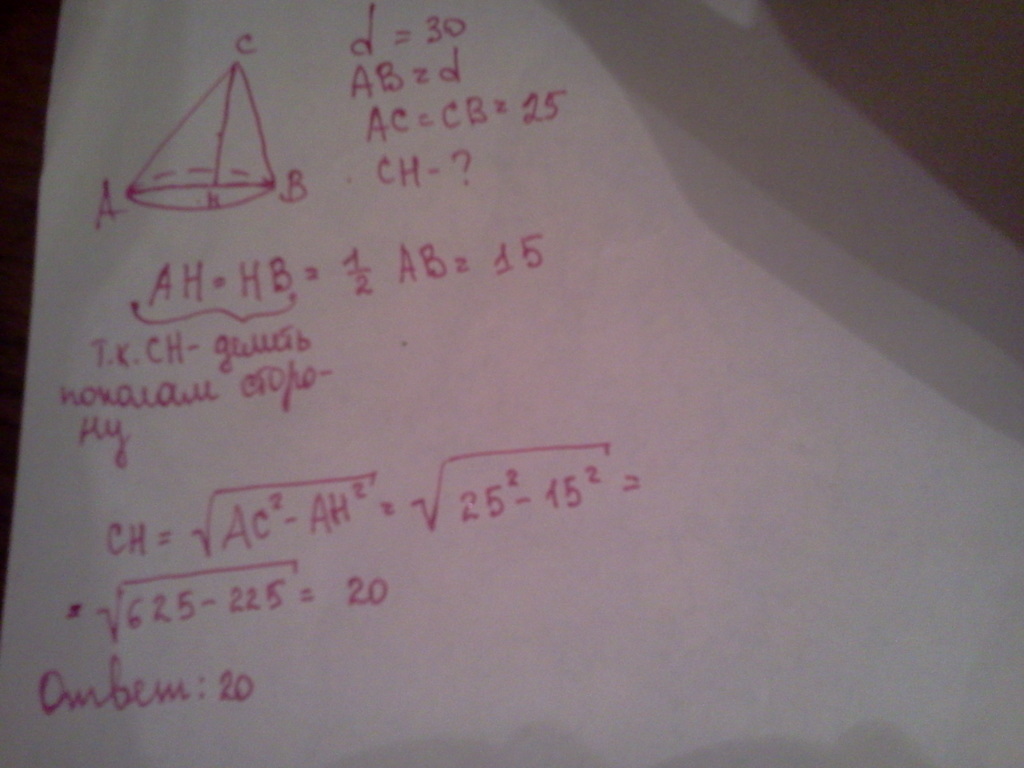 C
A
B
H
d = 30
AB = d
AC = CB = 25
CH - ?
AH = HB = 1/2 AB = 15
т.к. CH - делить
пополам сторо-
ну
CH = √AC² - AH² = √25² - 15² =
= √625 - 225 = 20
Ответ: 20